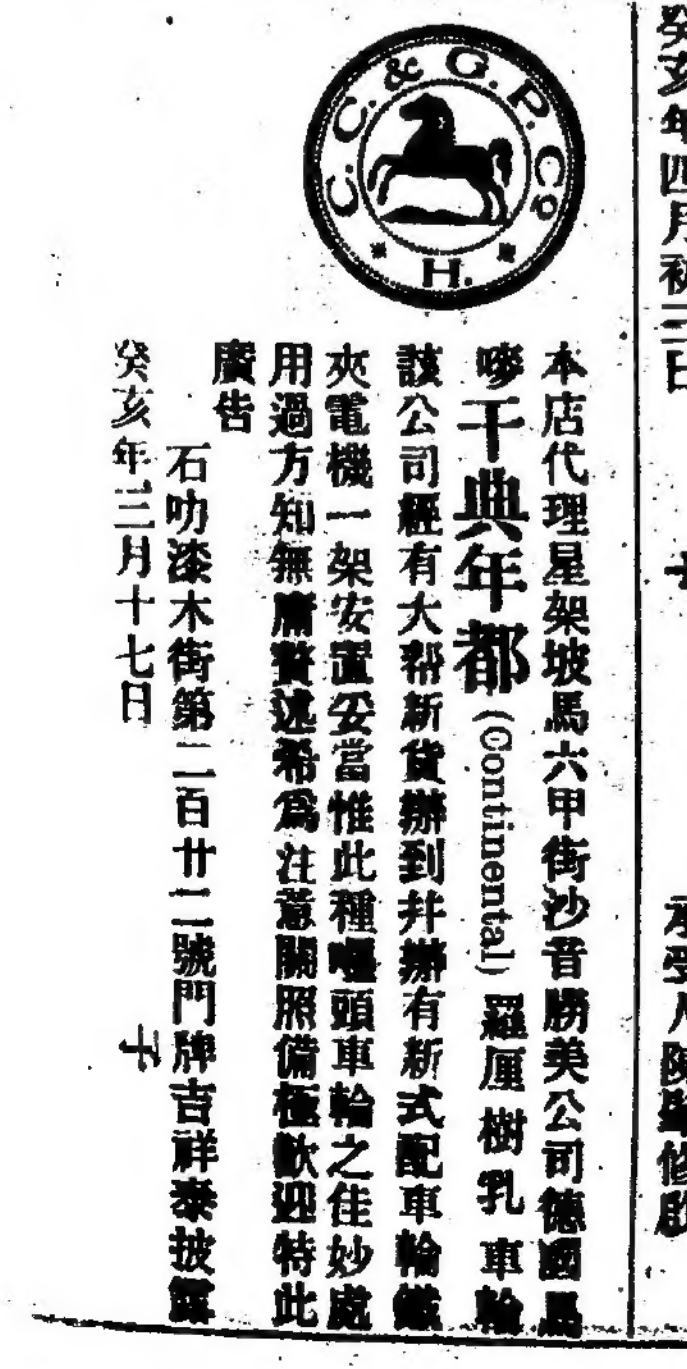 癸亥年四月初二日
承受人陳
修啟
C. C. & G. P. Co
H.
本店代理星架坡馬六甲街沙音勝美公司德國馬
嘜干典年都(Continental)羅厘樹乳車輪
該公司經有大帮新貨辦到幷辦有新式配車輪鐵
夾電機一架安置妥當惟此種嘅頭車輪之佳妙處
用過方知無庸贅述希為注意關照備極歡迎特此
廣告
石叻漆木街第二百廿二號門牌吉祥泰披露
癸亥年三月十七日